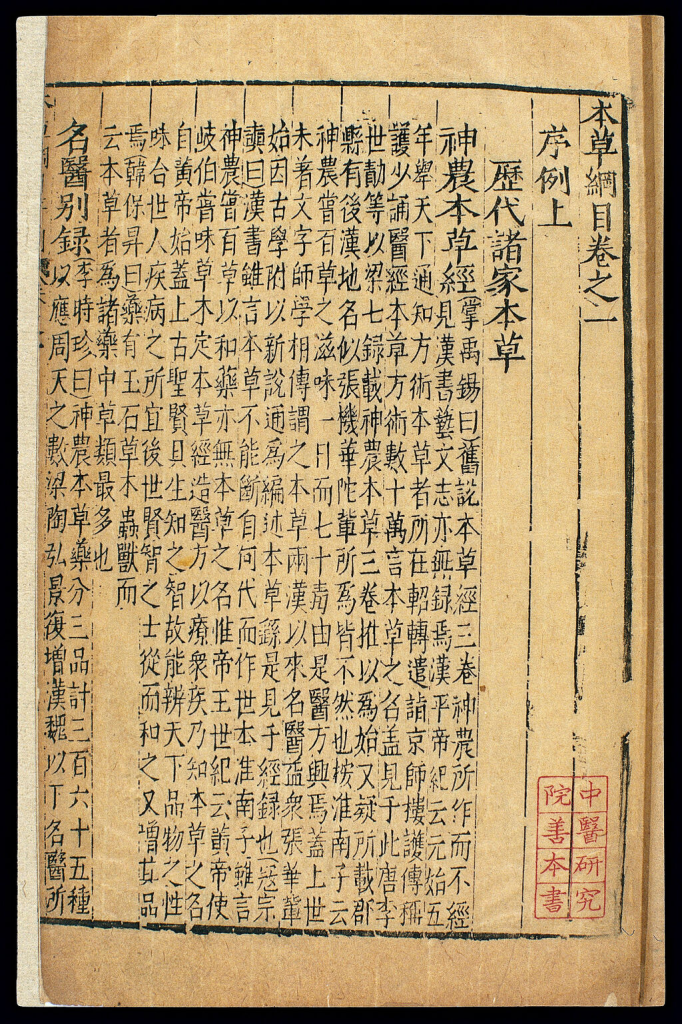 本草綱目卷之一
序例上
歷代諸家本草
神農本草經掌禹錫曰舊說本草經三卷神農所作而不經
見漢書藝文志亦無錄焉漢平帝紀云元始五
年舉天下通知方術本草者所在軺轉遣詣京師摟護傳稱
護少誦醫經本草方術數十萬言本草之名蓋見于此唐李
世勣等以梁七録載神農本草三卷推以爲始又疑所載郡
縣有後漢地名似張機華陀輩所爲皆不然也按淮南子云
神農嘗百草之滋味一日而七十毒由是醫方興焉蓋上世
未著文字師學相傳謂之本草兩漢以來名醫益衆張華輩
始因古學附以新說通爲編述本草繇是見于經録也寇宗
奭曰漢書雖言本草不能斷自何代而作世本淮南子雖言
神農嘗百草以和藥亦無本草之名惟帝王世紀云黃帝使
岐伯嘗味草木定本草經造醫方以療衆疾乃知本草之名
自黃帝始蓋上古聖賢具生知之智故能辨天下品物之性
味合世人疾病之所宜後世賢智之士從而和之又增其品
焉韓保昇曰藥有玉石草木蟲獸而
云本草者爲諸藥中草類最多也
名醫别録李時珍曰神農本草藥分三品計三百六十五種
以應周天之數梁陶弘景復增漢魏以下名醫所
中醫研究
院善本書